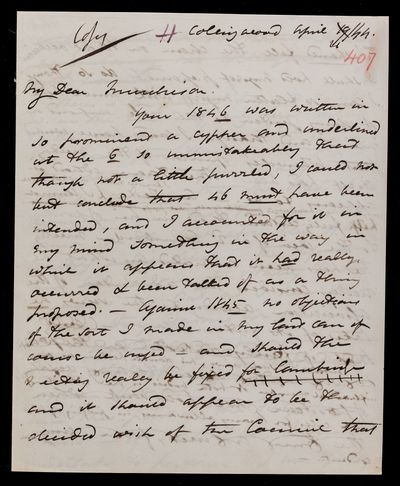 Copy H Collingwood April 19/44.
407
My Dear Murchison.
Your 1846 was written in
so prominent a cypher and underlined
at the 6 so unmistakeably that
though not a little puzzled, I could not
but conclude that 46 must have been
intended, and I accounted for it in
my mind something in the way in
which it appears that it had really
occurred & been talked of as a thing
proposed. — Against 1845 no objections
of the sort I made in my last can of
course be urged — and should the
meeting really be fixed for Cambridge
and it should appear to be the
decided wish of the Council that